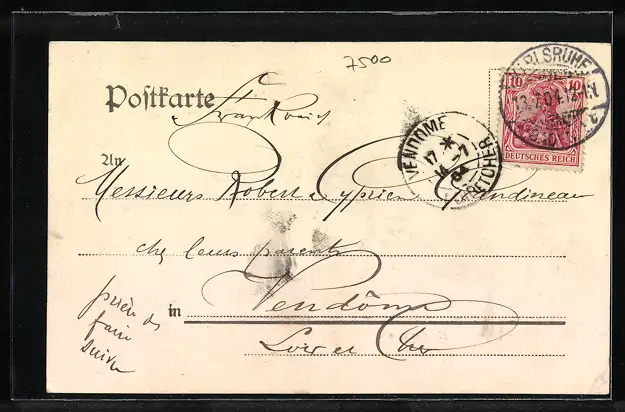 7500
Postkarte
Frankreich
KARLSRUHE
13.7.04.
10 10
DEUTSCHES REICH
VENDOME
17
14 -7
04
An
Messieurs Robert & Cyprien Gendineau
chez leurs parents
in Vendôme
Loir et Cher
prière de
faire
suivre